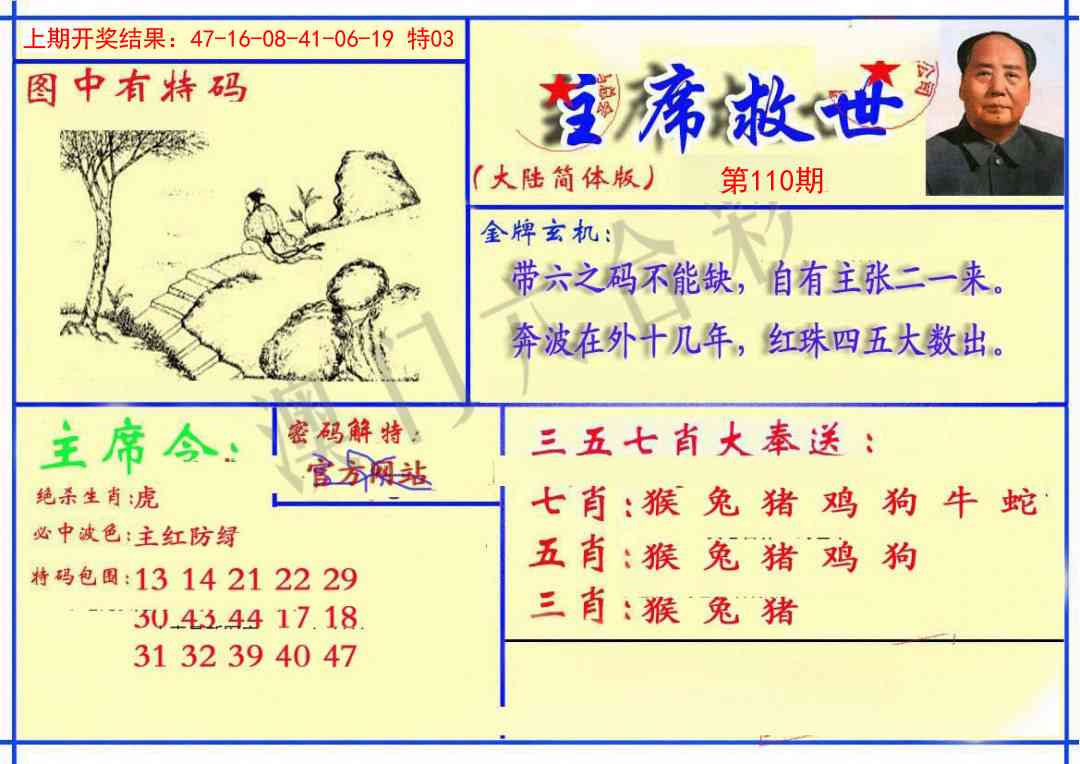 上期开奖结果：47-16-08-41-06-19 特03
图中有特码
主席救世
（大陆简体版）
第110期
金牌玄机：
带六之码不能缺，自有主张二一来。
奔波在外十几年，红珠四五大数出。
澳门六合彩
主席令：
绝杀生肖:虎
必中波色:主红防绿
特码包围:13 14 21 22 29
30 43 44 17 18
31 32 39 40 47
密码解特：
官方网站
三五七肖大奉送：
七肖:猴 兔 猪 鸡 狗 牛 蛇
五肖:猴 兔 猪 鸡 狗
三肖:猴 兔 猪